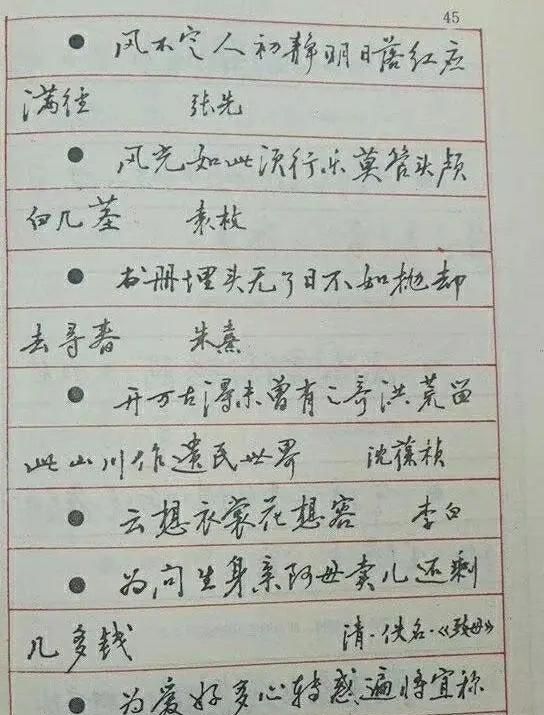 45
● 风不定人初静明日落红应
满径 张先
● 风光如此须行乐莫管头颅
白几茎 袁枚
● 书册埋头无了日不如抛却
去寻春 朱熹
● 开万古得未曾有之奇洪荒留
此山川作遗民世界 沈葆祯
● 云想衣裳花想容 李白
● 为问生身亲阿母卖儿还剩
几多钱 清·佚名·《致母》
● 为爱好多心转惑遍将宜称